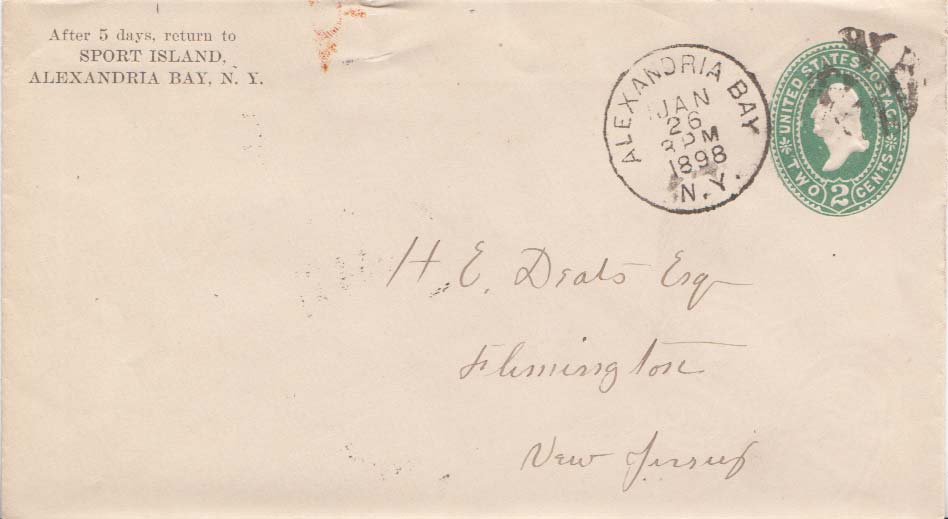 After 5 days, return to
SPORT ISLAND,
ALEXANDRIA BAY, N. Y.
ALEXANDRIA BAY
JAN
26
PM
1898
N.Y.
UNITED STATES POSTAGE
TWO 2 CENTS
H. E. Deats Esq
Flemington
New Jersey